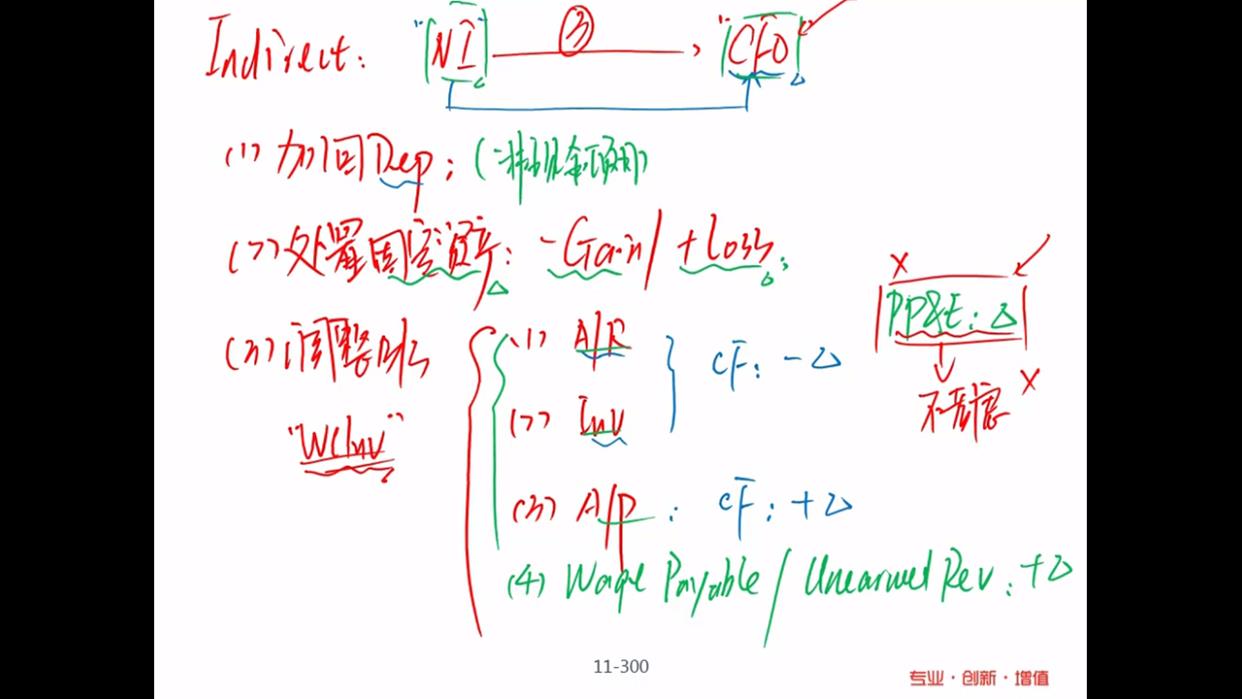 Indirect: "NI" ③ "CFO"
(1) 加回Dep: (非现金项目)
(2) 处置固定资产: -Gain / +Loss;
(3) 调整 "WCInv"
(1) A/R
(2) Inv
CF: -△
(3) A/P: CF: +△
(4) Wage Payable / Unearned Rev: +△
X
PP&E: △
不考虑 X
11-300
专业·创新·增值